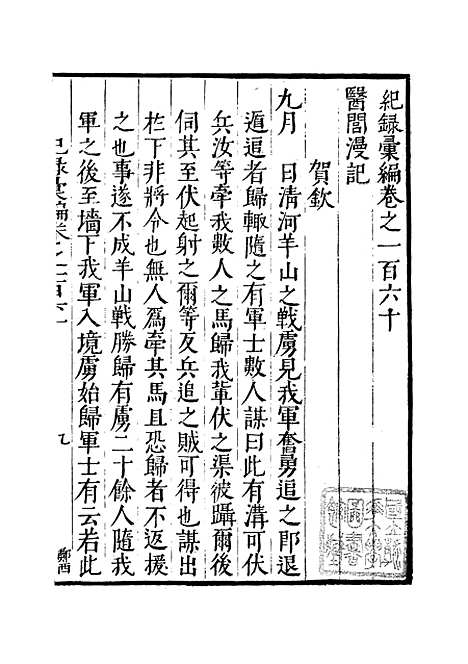 紀録彙編卷之一百六十
醫閭漫記
賀欽
九月　日清河羊山之戰虜見我軍奮勇追之即退
遁追者歸輙隨之有軍士數人謀曰此有溝可伏
兵汝等牽我數人之馬歸我軰伏之渠彼躡爾後
伺其至伏起射之爾等反兵追之賊可得也謀出
在下非將令也無人爲牽其馬且恐歸者不返援
之也事遂不成羊山戰勝歸有虜二十餘人隨我
軍之後至墻下我軍入境虜始歸軍士有云若此